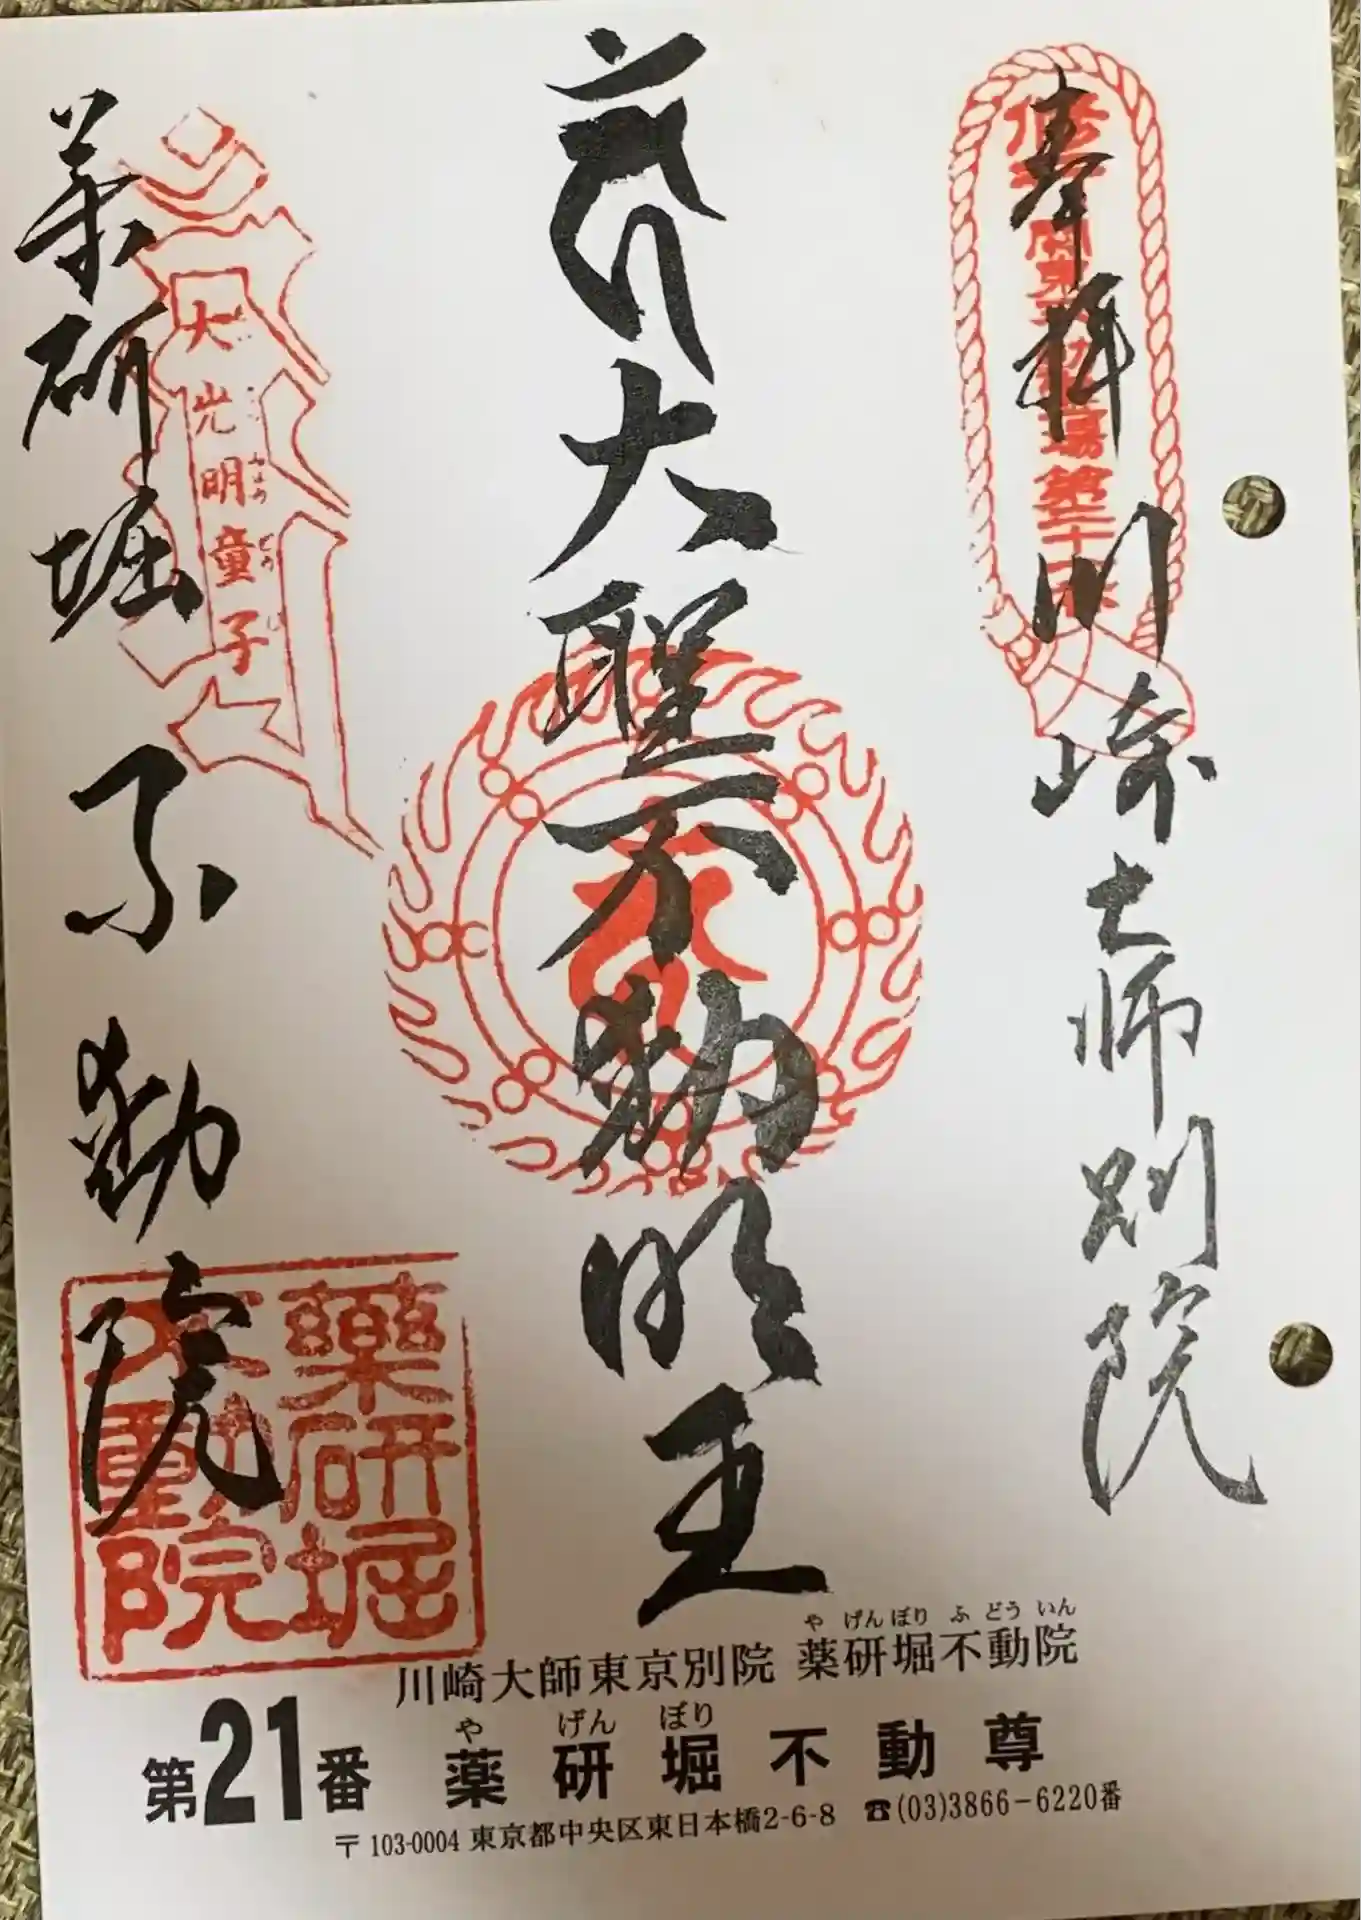 奉拝
川崎大師別院
大聖不動明王
薬研堀不動院
関東
場第二十一
大光明童子
みょう
どう
じ
薬研堀
不動院
や げん ぼり ふ どう いん
川崎大師東京別院 薬研堀不動院
や げん ぼり
第21番 薬研堀不動尊
〒103-0004 東京都中央区東日本橋2-6-8 ☎(03)3866-6220番